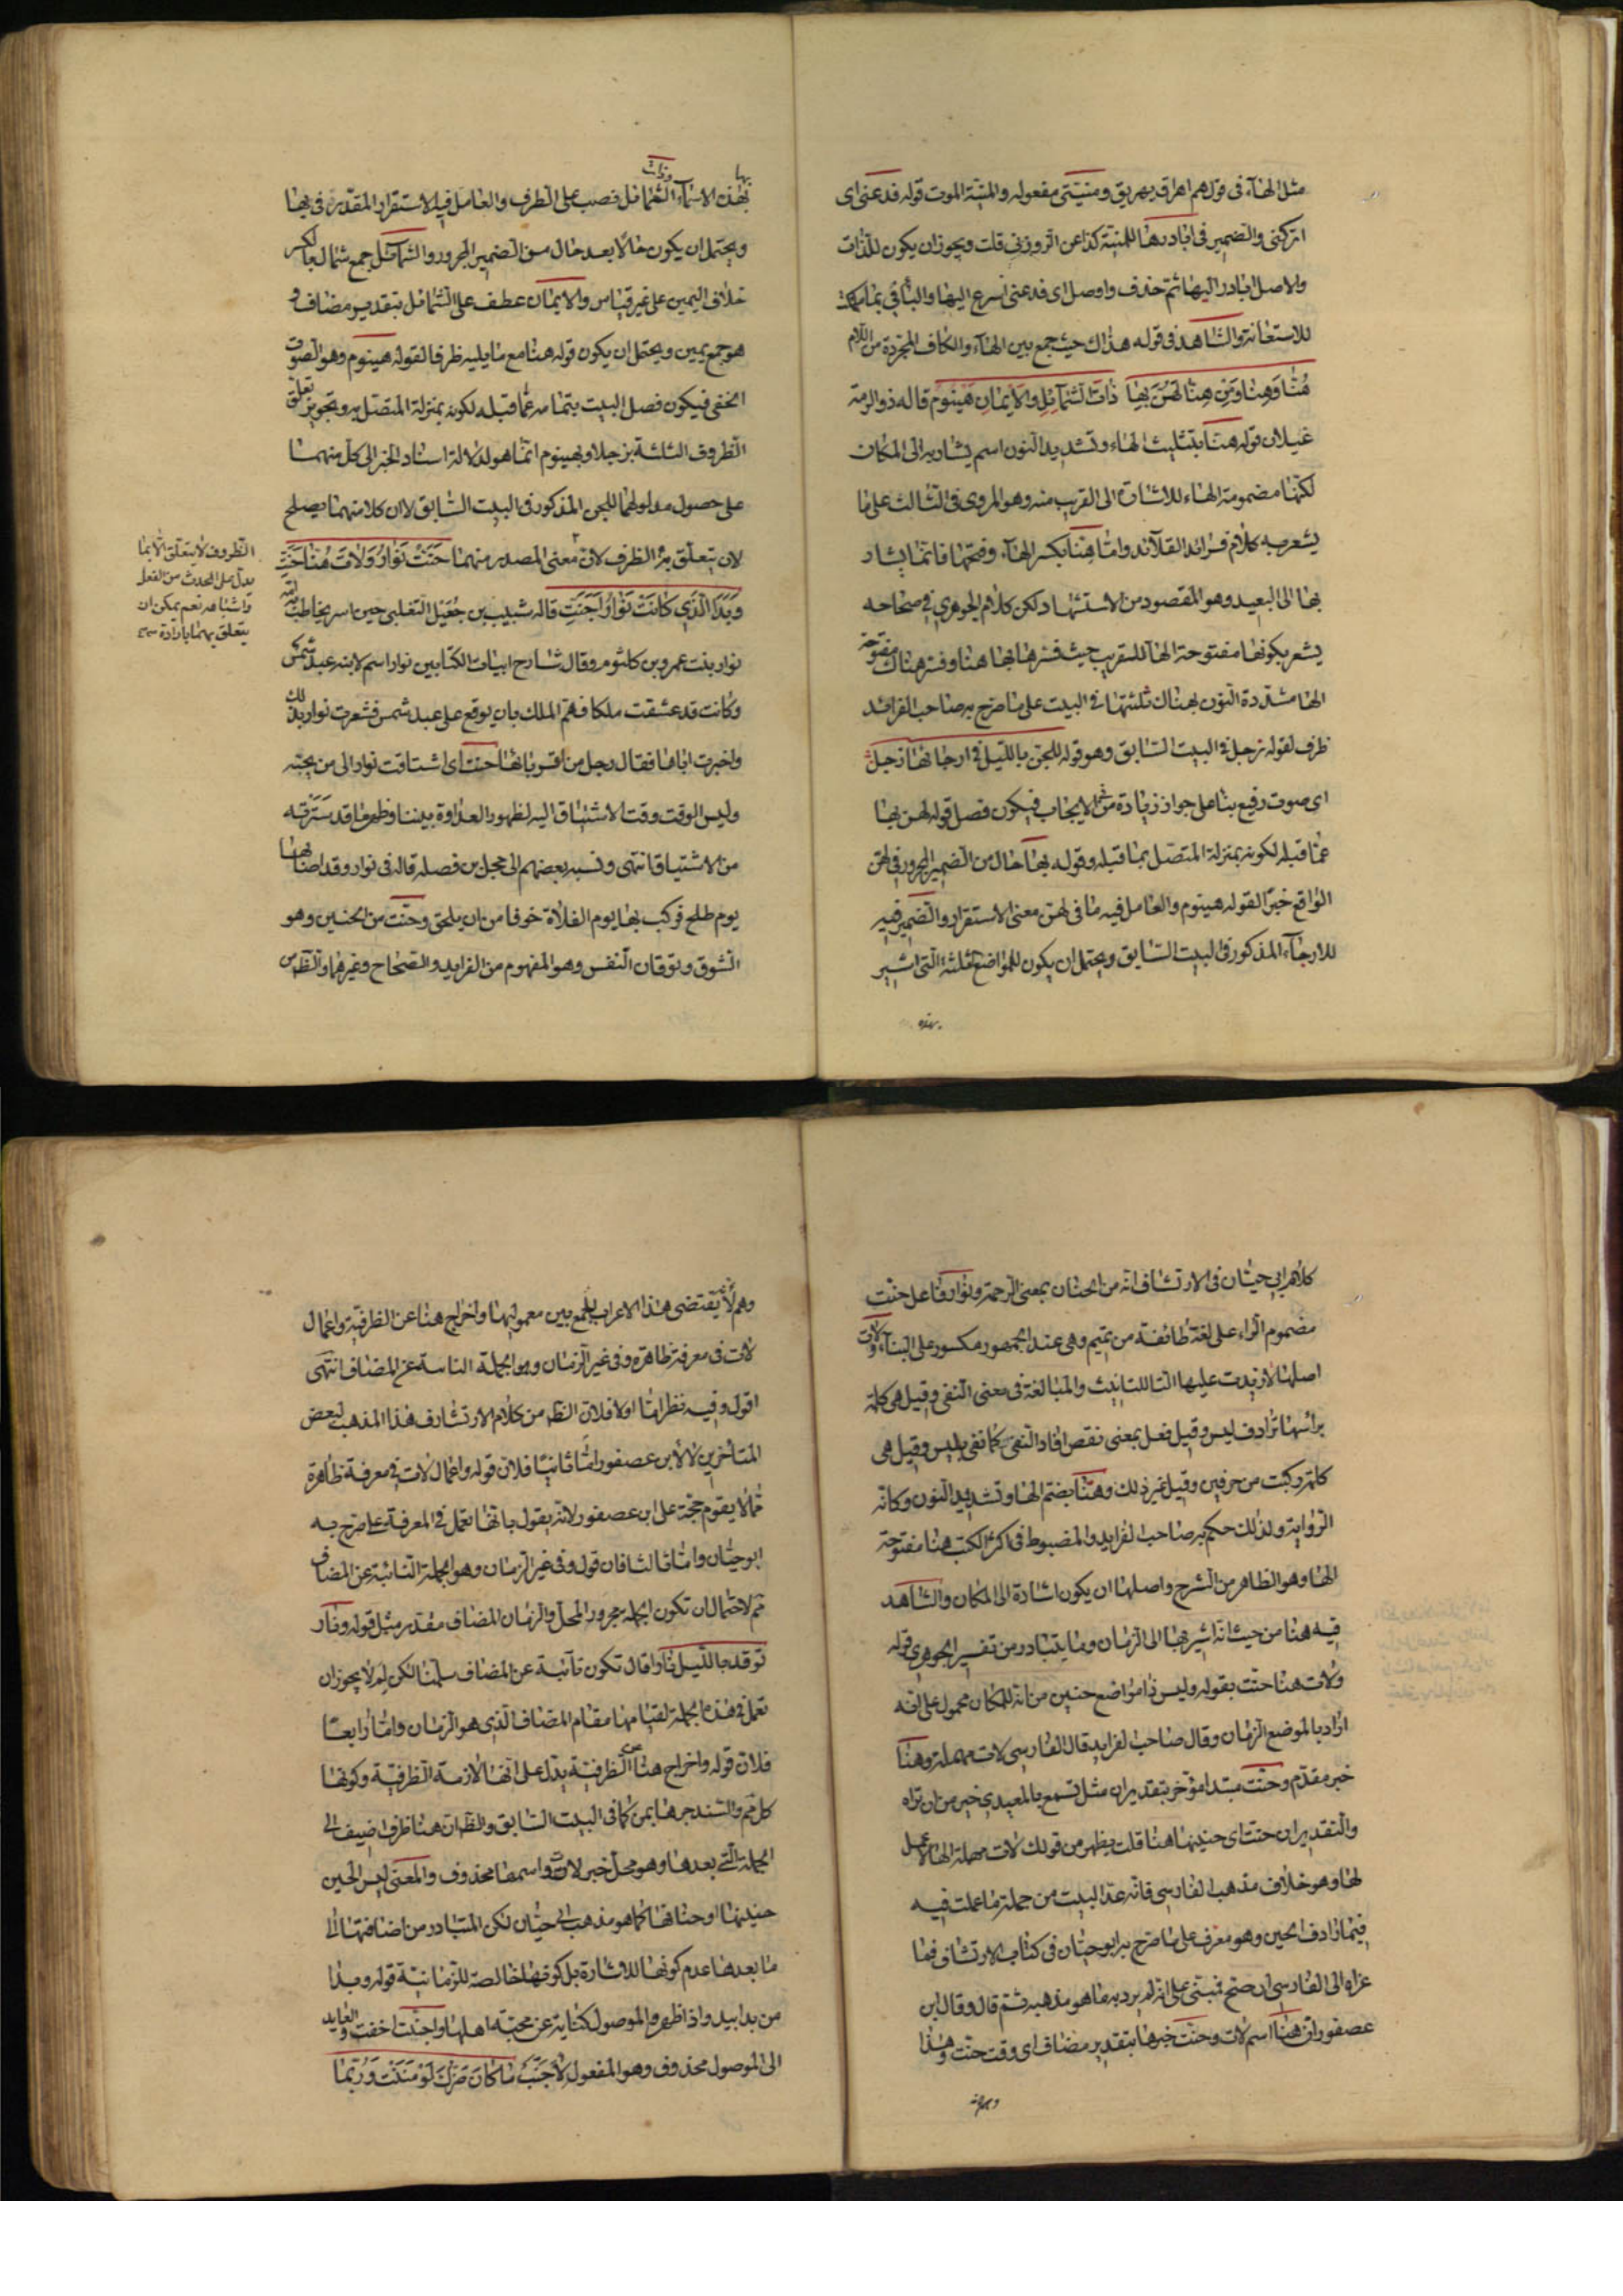 مثل الهاء فى قولهم اهراق يهريق ومنيتى مفعوله والمنية الموت قوله فدعنى اى
اتركنى والضمير فى ابادرها للمنية كذا عن الزوزنى قلت ويجوز ان يكون للذات
والاصل ابادر اليها ثم حذف واوصل اى فدعنى اسرع اليها والباقى بما ملكت
للاستعانة والشاهد فى قوله هذاك حيث جمع بين الهاء والكاف المجردة من اللام
هُنَّا وَهِنَّا وَمِنْ هِنَّا لَهُنَّ بِهَا ذَاتَ الشَّمَائِلِ وَالْاَيْمَانِ هَيْنُومُ قاله ذو الرمة
غيلان قوله هنا بتثليث الهاء وتشديد النون اسم يشار به الى المكان
لكنها مضمومة الهاء للاشارة الى القريب منه وهو المروى فى الثالث على ما
يشعر به كلام فرائد القلائد واما هنا بكسر الهاء وفتحها فانما يشار
بها الى البعيد وهو المقصود من الاستشهاد لكن كلام الجوهرى فى صحاحه
يشعر بكونها مفتوحة الهاء للتقريب حيث فسرها بها هنا وفسر هناك مفتوحة
الها مشددة النون بهناك ثلثتها فى البيت على ما صرح به صاحب الفرائد
ظرف لقوله زجل فى البيت السابق وهو قوله للجن بالليل فى ارجائها زجل
اى صوت رفيع بناء على جواز زيادة من فى الايجاب فيكون فصل قوله لهن بها
عما قبله لكونه بمنزلة المتصل بما قبله وقوله بها حال من الضمير المجرور فى لهن
الواقع خبرا لقوله هينوم والعامل فيه ما فى لهن معنى الاستقرار والضمير فيه
للارجاء المذكور فى البيت السابق ويحتمل ان يكون للمواضع الثلثة التى اشير
بهذه
بها وذات
بهذه الاسماء الشمائل نصب على الظرف والعامل فيه الاستقرار المقدر فى بها
ويحتمل ان يكون حالا بعد حال من الضمير المجرور والشمائل جمع شمال بالكسر
خلاف اليمين على غير قياس والايمان عطف على الشمائل بتقدير مضاف و
هو جمع يمين ويحتمل ان يكون قوله هنا مع ما يليه ظرفا لقوله هينوم وهو الصوت
الخفى فيكون فصل البيت بتمامه عما قبله لكونه بمنزلة المتصل به وتجويز تعلق
الظروف الثلثة بزجل او بهينوم انما هو لدلالة اسناد الخبر الى كل منهما
على حصول مدلولهما للجن المذكور فى البيت السابق لا ان كلا منهما يصلح
لان يتعلق به الظرف لان معنى المصدر منهما حَنَّتْ نَوَارُ وَلاَتَ هُنَّا حَنَّتِ
وَبَدَا الَّذِى كَانَتْ نَوَارُ اَجَنَّتِ قاله شبيب بن جُعَيْل التغلبى حين اسر يخاطب امه
نوار بنت عمرو بن كلثوم وقال شارح ابيات الكتابين نوار اسم لابنة عبد شمس
وكانت قد عشقت ملكا فهم الملك بان يوقع على عبد شمس فشعرت نوار بذلك
واخبرت اباها فقال رجل من اقربائها حنت اى اشتاقت نوار الى من يحبه
وليس الوقت وقت الاشتياق اليه لظهور العداوة بيننا وظهر ما قد سترته
من الاشتياق انتهى ونسبه بعضهم الى حجل بن فضلة قاله فى نوار وقد اصابها
يوم طلح فركب بها يوم الفلاة خوفا من ان يلحق وحنت من الحنين وهو
الشوق وتوقان النفس وهو المفهوم من الفرايد والصحاح وغيرهما والظاهر من
الظروف لا يتعلق الا بما
يدل على الحدث من الفعل
واشباهه نعم يمكن ان
يتعلق بهما بارادة
كلام ابى حيان فى الارتشاف انه من الحنان بمعنى الرحمة ونوار فاعل حنت
مضموم الراء على لغة طائفة من تميم وهى عند الجمهور مكسور على البناء ولات
اصلها لا زيدت عليها التا للتانيث والمبالغة فى معنى النفى وقيل هى كلمة
برأسها ترادف ليس وقيل فعل بمعنى نقص افاد النفى كما نفى بليس وقيل هى
كلمة ركبت من حرفين وقيل غير ذلك وهنا بضم الها وتشديد النون وكانه
الرواية ولذلك حكم به صاحب الفرايد والمضبوط فى اكثر الكتب هنا مفتوحة
الها وهو الظاهر من الشرح واصلها ان يكون اشارة الى المكان والشاهد
فيه هنا من حيث انه اشير بها الى الزمان وما يتبادر من تفسير الجوهرى قوله
ولات هنا حنت بقوله وليس ذا مواضع حنين من انه للمكان محمول على انه
اراد بالموضع الزمان وقال صاحب الفرايد قال الفارسى لات مهملة وهنا
خبر مقدم وحنت مبتدا مؤخر بتقدير ان مثل تسمع بالمعيدى خير من ان تراه
والتقدير ان حنت اى حنينها هنا قلت يظهر من قولك لات مهملة انها لا عمل
لها وهو خلاف مذهب الفارسى فانه عد البيت من جملة ما عملت فيه
فيما رادف الحين وهو معرف على ما صرح به ابو حيان فى كتاب الارتشاف فما
عزاه الى الفارسى ان صح فمبنى على انه لم يرد به ما هو مذهبه ثم قال وقال ابن
عصفور ان هنا اسم لات وحنت خبرها بتقدير مضاف اى وقت حنت وهذا
وهم لانه يقتضى هذا الاعراب الجمع بين معموليها واخراج هنا عن الظرفية واعمال
لات فى معرفة ظاهرة وفى غير الزمان وهو الجملة النائبة عن المضاف انتهى
اقول وفيه نظر اما اولا فلان الظاهر من كلام الارتشاف هذا المذهب لبعض
المتأخرين لا لابن عصفور اما ثانيا فلان قوله واعمال لات فى معرفة ظاهرة
مما لا يقوم حجة على ابن عصفور لانه يقول بانها تعمل فى المعرفة على ما صرح به
ابو حيان واما ثالثا فان قوله وفى غير الزمان وهو الجملة النائبة عن المضاف
ثم لاحتمال ان تكون الجملة مجرور المحل والزمان المضاف مقدر مثل قوله ونار
توقد بالليل نارا قال تكون نائبة عن المضاف سلمنا لكن لم لا يجوز ان
تعمل فى هذه الجملة لقيامها مقام المضاف الذى هو الزمان واما رابعا
فلان قوله واخراج هنا عن الظرفية يدل على انها لازمة الظرفية وكونها
كل ثم والسند جرها بمن كما فى البيت السابق والظاهر ان هنا ظرف اضيف الى
الجملة التى بعدها وهو محل خبر لات واسمها محذوف والمعنى ليس الحين
حنينها او حنانها كما هو مذهب ابى حيان لكن المتبادر من اضافتها الى
ما بعدها عدم كونها للاشارة بل كونها خالصة للزمانية قوله وبدا
من بدا يبدو اذا ظهر والموصول كناية عن محبته اهلها واجنت اخفت والعايد
الى الموصول محذوف وهو المفعول لاجنت مَا كَانَ ضَرَّكَ لَوْ مَنَنْتَ وَرُبَّمَا